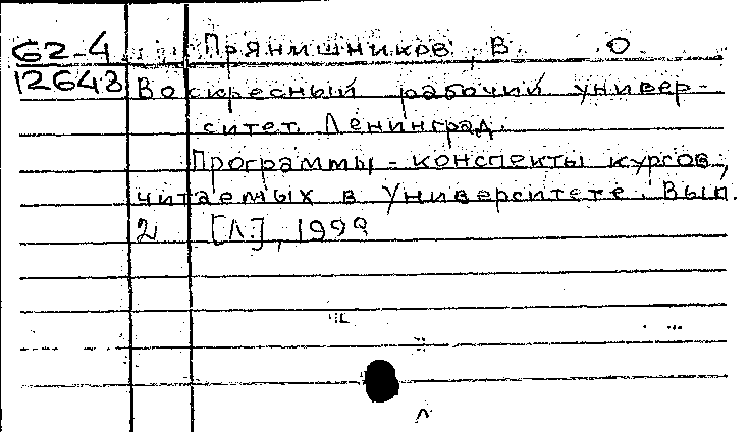 62-4 Прянишников, В. О.
12648 Воскресный рабочий универ-
ситет. Ленинград.
Программы-конспекты курсов,
читаемых в Университете. Вып.
2 [Л.], 1999